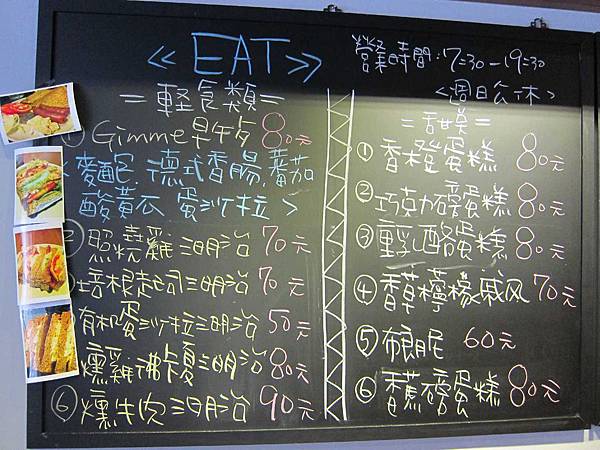 ≪ EAT ≫
=輕食類=
① Gimme早午夕 80元
<麵包 德式香腸、蕃茄
酸黃瓜 蛋沙拉>
照燒雞三明治 70元
培根起司三明治 70元
有机蛋沙拉三明治 50元
燻雞沸頓三明治 80元
⑥ 燻牛肉三明治 90元
營業時間:7:30－19:30
<週日公休>
=甜美=
① 香橙蛋糕 80元
② 巧克力磅蛋糕 80元
③ 重乳酪蛋糕 80元
④ 香草檸檬戚风 70元
⑤ 布朗尼 60元
⑥ 香蕉磅蛋糕 80元